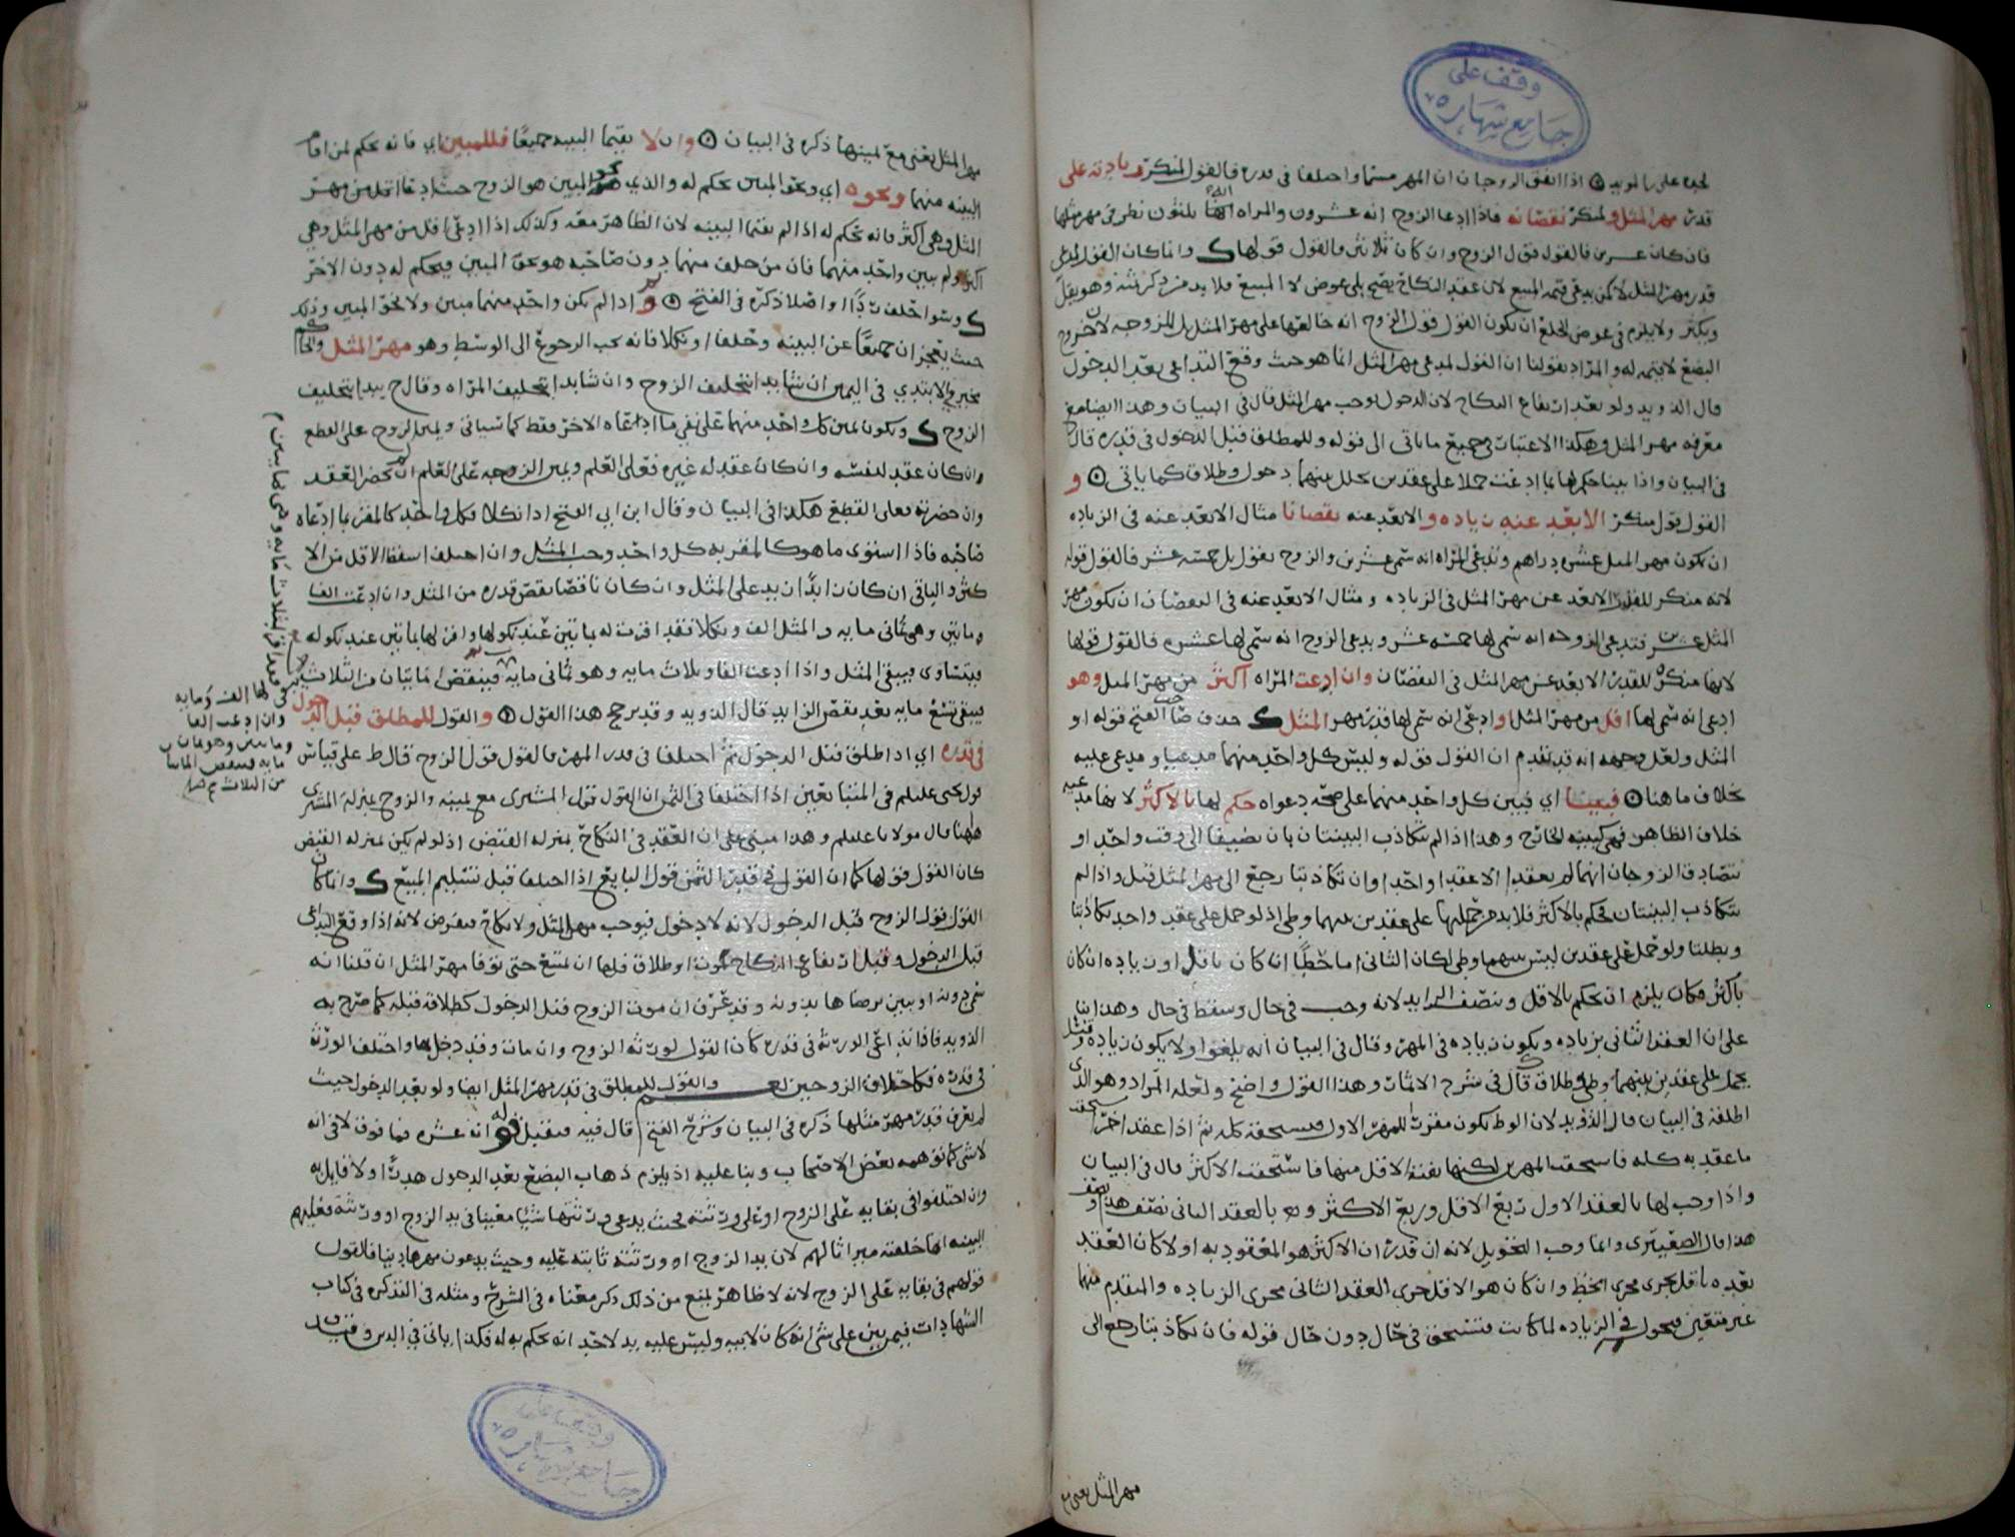 وقف على
جامع شهاره
اذا اتفق الزوجان ان المهر مسما واختلفا في قدره فالقول لمنكر زيادته على
قدر مهر المثل ولمنكر نقصانه فاذا ادعا الزوج انه عشرون والمراه انها ثلثون نظر في مهر مثلها
فان كان عشرين فالقول قول الزوج وان كان ثلاثين فالقول قولها وانما كان القول لمدعي
قدر مهر المثل لا كمن يدعي قيمه المبيع لان عقد النكاح يصح بلا عوض لا المبيع فلا بد من ذكر ثمنه وهو يقل
ويكثر ولا يلزم في عوض الخلع ان يكون القول قول الزوج انه خالعها على مهر المثل بل للزوجه لان خروج
البضع لا قيمه له والمراد بقولنا ان القول لمدعي مهر المثل انما هو حيث وقع التداعي بعد الدخول
قال الذويد ولو بعد ارتفاع النكاح لان الدخول يوجب مهر المثل قال في البيان وهذا ايضا مع
معرفه مهر المثل وهكذا الاعتبار في جميع ما ياتي الى قوله وللمطلق قبل الدخول في قدره قال
في البيان واذا بينا حكم لها بما ادعت حملا على عقدين تخلل بينهما دخول وطلاق كما ياتي و
القول قول منكر الابعد عنه زياده والابعد عنه نقصانا مثال الابعد عنه في الزياده
ان يكون مهر المثل عشره دراهم وتدعي المراه انه سمى عشرين والزوج يقول بل خمسه عشر فالقول قوله
لانه منكر للقدر الابعد عن مهر المثل في الزياده ومثال الابعد عنه في النقصان ان يكون مهر
المثل عشرين فتدعي الزوجه انه سمى لها خمسه عشر ويدعي الزوج انه سمى لها عشره فالقول قولها
لانها منكره للقدر الابعد عن مهر المثل في النقصان وان ادعت المراه اكثر من مهر المثل وهو
ادعى انه سمى لها اقل من مهر المثل او ادعى انه سمى لها قدر مهر المثل حذف صاحب الفتح قوله او
المثل ولعل وجهه انه قد تقدم ان القول قوله وليس كل واحد منهما مدعيا ومدعى عليه
بخلاف ما هنا فبينا اي فبين كل واحد منهما على صحه دعواه حكم لها بالاكثر لانها مدعيه
خلاف الظاهر فهي كبينه الخارج وهذا اذا لم تتكاذب البينتان بان يضيفا الى وقت واحد او
يتصادق الزوجان انهما لم يعقدا الا عقدا واحدا وان تكاذبتا رجع الى مهر المثل قيل واذا لم
تتكاذب البينتان حكم بالاكثر فلا بد من حملها على عقدين بينهما وطي اذ لو حمل على عقد واحد تكاذبتا
وبطلتا ولو حمل على عقدين ليس بينهما وطي لكان الثاني اما حطا ان كان باقل او زياده ان كان
باكثر فكان يلزم ان يحكم بالاقل ونصف الزايد لانه وجب في حال وسقط في حال وهذا بنا
على ان العقد الثاني بزياده ويكون زياده في المهر وقال في البيان انه يلغوا ولا يكون زياده وقيل
يحمل على عقدين بينهما وطي وطلاق قال في شرح الاثمار وهذا القول واضح ولعله المراد وهو الذي
اطلقه في البيان قال الذويد لان الوطي يكون مقررا للمهر الاول فيستحقه كله ثم اذا عقد اخر استحقت
ما عقد به كله فاستحقت المهرين لكنها بقته الاقل منها فاستحقت الاكثر قال في البيان
واذا وجب لها بالعقد الاول ربع الاقل وربع الاكثر وجب بالعقد الثاني نصف هذا ونصف
هذا قال الصعيتري وانما وجب التحويل لانه ان قدر ان الاكثر هو المعقود به اولا كان العقد
بعده باقل يجري مجرى الحط وان كان هو الاقل جرى العقد الثاني مجرى الزياده والمتقدم منهما
غير متعين فيحول في الزياده لما كانت تستحق في حال دون حال قوله فان تكاذبتا رجع الى
مهر المثل يعني مع
مهر المثل يعني مع يمينها ذكره في البيان وان لا يقيما البينه جميعا فللمبين اي فانه يحكم لمن اقام
البينه منهما ونحوه اي ونحو المبين يحكم له والذي هو كالمبين هو الزوج حيث ادعا اقل من مهر
المثل وهي اكثر فانه يحكم له اذا لم يقيما البينه لان الظاهر معه وكذلك اذا ادعى اقل من مهر المثل وهي
اكثر ولم يبين واحد منهما فان من حلف منهما دون صاحبه هو نحو المبين فيحكم له دون الاخر
وسوا حلف ردا او اصلا ذكره في الفتح و اذا لم يكن واحد منهما مبين ولا نحو المبين وذلك
حيث يعجزان جميعا عن البينه وحلفا او نكلا فانه يجب الرجوع الى الوسط وهو مهر المثل والحاكم
مخير في الابتدي في اليمين ان شا بدا بتحليف الزوج وان شا بدا بتحليف المراه وقال ح يبدا بتحليف
الزوج ويكون يمين كل واحد منهما على نفي ما ادعاه الاخر فقط كما سياتي ويمين الزوج على القطع
ان كان عقد لنفسه وان كان عقد له غيره فعلى العلم ويمين الزوجه على العلم ان لم تحضر العقد
وان حضرته فعلى القطع هكذا في البيان وقال ابن ابي الفتح اذا نكلا فكل واحد كالمقر بما ادعاه
صاحبه فاذا استوى ما هو كالمقر به كل واحد وجب المثل وان اختلف اسقط الاقل من الا
كثر والباقي ان كان زايدا زيد على المثل وان كان ناقصا نقص قدره من المثل وان ادعت الفا
ومايتين وهو ثماني مايه والمثل الف ونكلا فقد اقرت له بمايتين عند نكولها واقر لها بمايتين عند نكوله
فيتساوى فيبقى المثل واذا ادعت الفا وثلاث مايه وهو ثماني مايه فينقص المايتان من الثلاث
فيبقى تسع مايه بعد نقص الزايد قال الذويد وقد يرجح هذا القول و القول للمطلق قبل الدخول
في قدره اي اذا طلق قبل الدخول ثم اختلفا في قدر المهر فالقول قول الزوج قال ط على قياس
قول يحيى عليلم في المتبايعين اذا اختلفا في الثمن ان القول قول المشتري مع يمينه والزوج بمنزله المشتري
هاهنا قال مولانا عليلم وهذا مبني على ان العقد في النكاح بمنزله القبض اذ لو لم يكن بمنزله القبض
كان القول قولها كما ان القول في قدر الثمن قول البايع اذا اختلفا قبل تسليم المبيع وانما كان
القول قول الزوج قبل الدخول لانه لا دخول فيوجب مهر المثل ولا نكاح فيفرض لانه اذا وقع التداعي
قبل الدخول وقبل ارتفاع النكاح بموت او طلاق فلها ان تمتنع حتى يوفا مهر المثل ان قلنا انه
سمى دونه او يبين برضاها بدونه وقد عرف ان موت الزوج قبل الدخول كطلاقه قبله كما صرح به
الذويد فاذا تداعى الورثه في قدره كان القول لورثه الزوج وان مات وقد دخل بها واختلف الورثه
في قدره فكاختلاف الزوجين نعم والقول للمطلق في قدر مهر المثل ايضا ولو بعد الدخول حيث
لم يعرف قدر مهر مثلها ذكره في البيان وشرح الفتح قال فيه فيقبل قوله انه عشره فما فوق لا في انه
لا شي كما توهمه بعض الاصحاب وبنا عليه اذ يلزم ذهاب البضع بعد الدخول هدرا ولا قايل به
وان اختلفوا في بقايه على الزوج او على ورثته فحيث يدعي ورثتها شيا معينا في يد الزوج او ورثته فعليهم
البينه انها خلفته ميراثا لهم لان يد الزوج او ورثته ثابته عليه وحيث يدعون مهرها دينا فالقول
قولهم في بقايه على الزوج لانه لا ظاهر يمنع من ذلك ذكر معناه في الشرح ومثله في التذكره في كتاب
الشهادات فيمن بين على شي انه كان لابيه وليس عليه يد لاحد انه يحكم به له فكذا ياتي في الدين
لها الف ومايه
وان ادعت الفا
ومايتين وهو ثمان
مايه فينقص المايتان
من الثلاث
وقف على
جامع شهاره